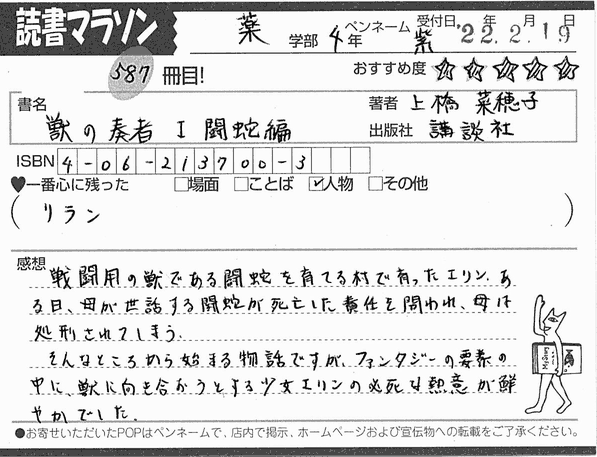 読書マラソン
薬 学部 4年 ペンネーム 紫 受付日 '22年2月19日
587冊目!
おすすめ度 ☆☆☆☆☆
書名 獣の奏者 I 闘蛇編
著者 上橋 菜穂子
出版社 講談社
ISBN 4-06-213700-3
♥一番心に残った □場面 □ことば ☑人物 □その他
( リラン )
感想
戦闘用の獣である闘蛇を育てる村で育ったエリン。あ
る日、母が世話する闘蛇が死亡した責任を問われ、母は
処刑されてしまう。
そんなところから始まる物語ですが、ファンタジーの要素の
中に、獣に向き合おうとする少女エリンの必死な熱意が鮮
やかでした。
●お寄せいただいたPOPはペンネームで、店内で掲示、ホームページおよび宣伝物への転載をご了承ください。